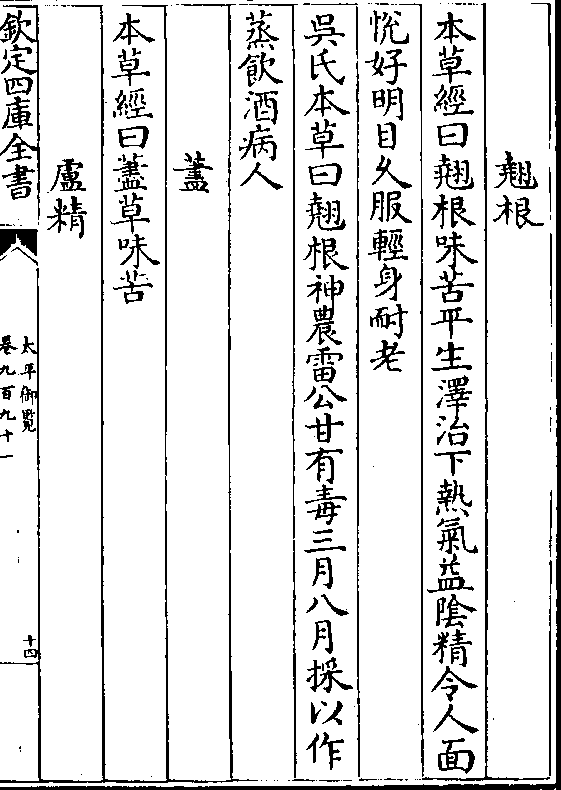 翹根
本草經曰翹根味苦平生澤治下熱氣益陰精令人面
悅好明目久服輕身耐老
吳氏本草曰翹根神農雷公甘有毒三月八月採以作
蒸飲酒病人
藎
本草經曰藎草味苦
盧精
欽定四庫全書
太平御覽
卷九百九十一
十四